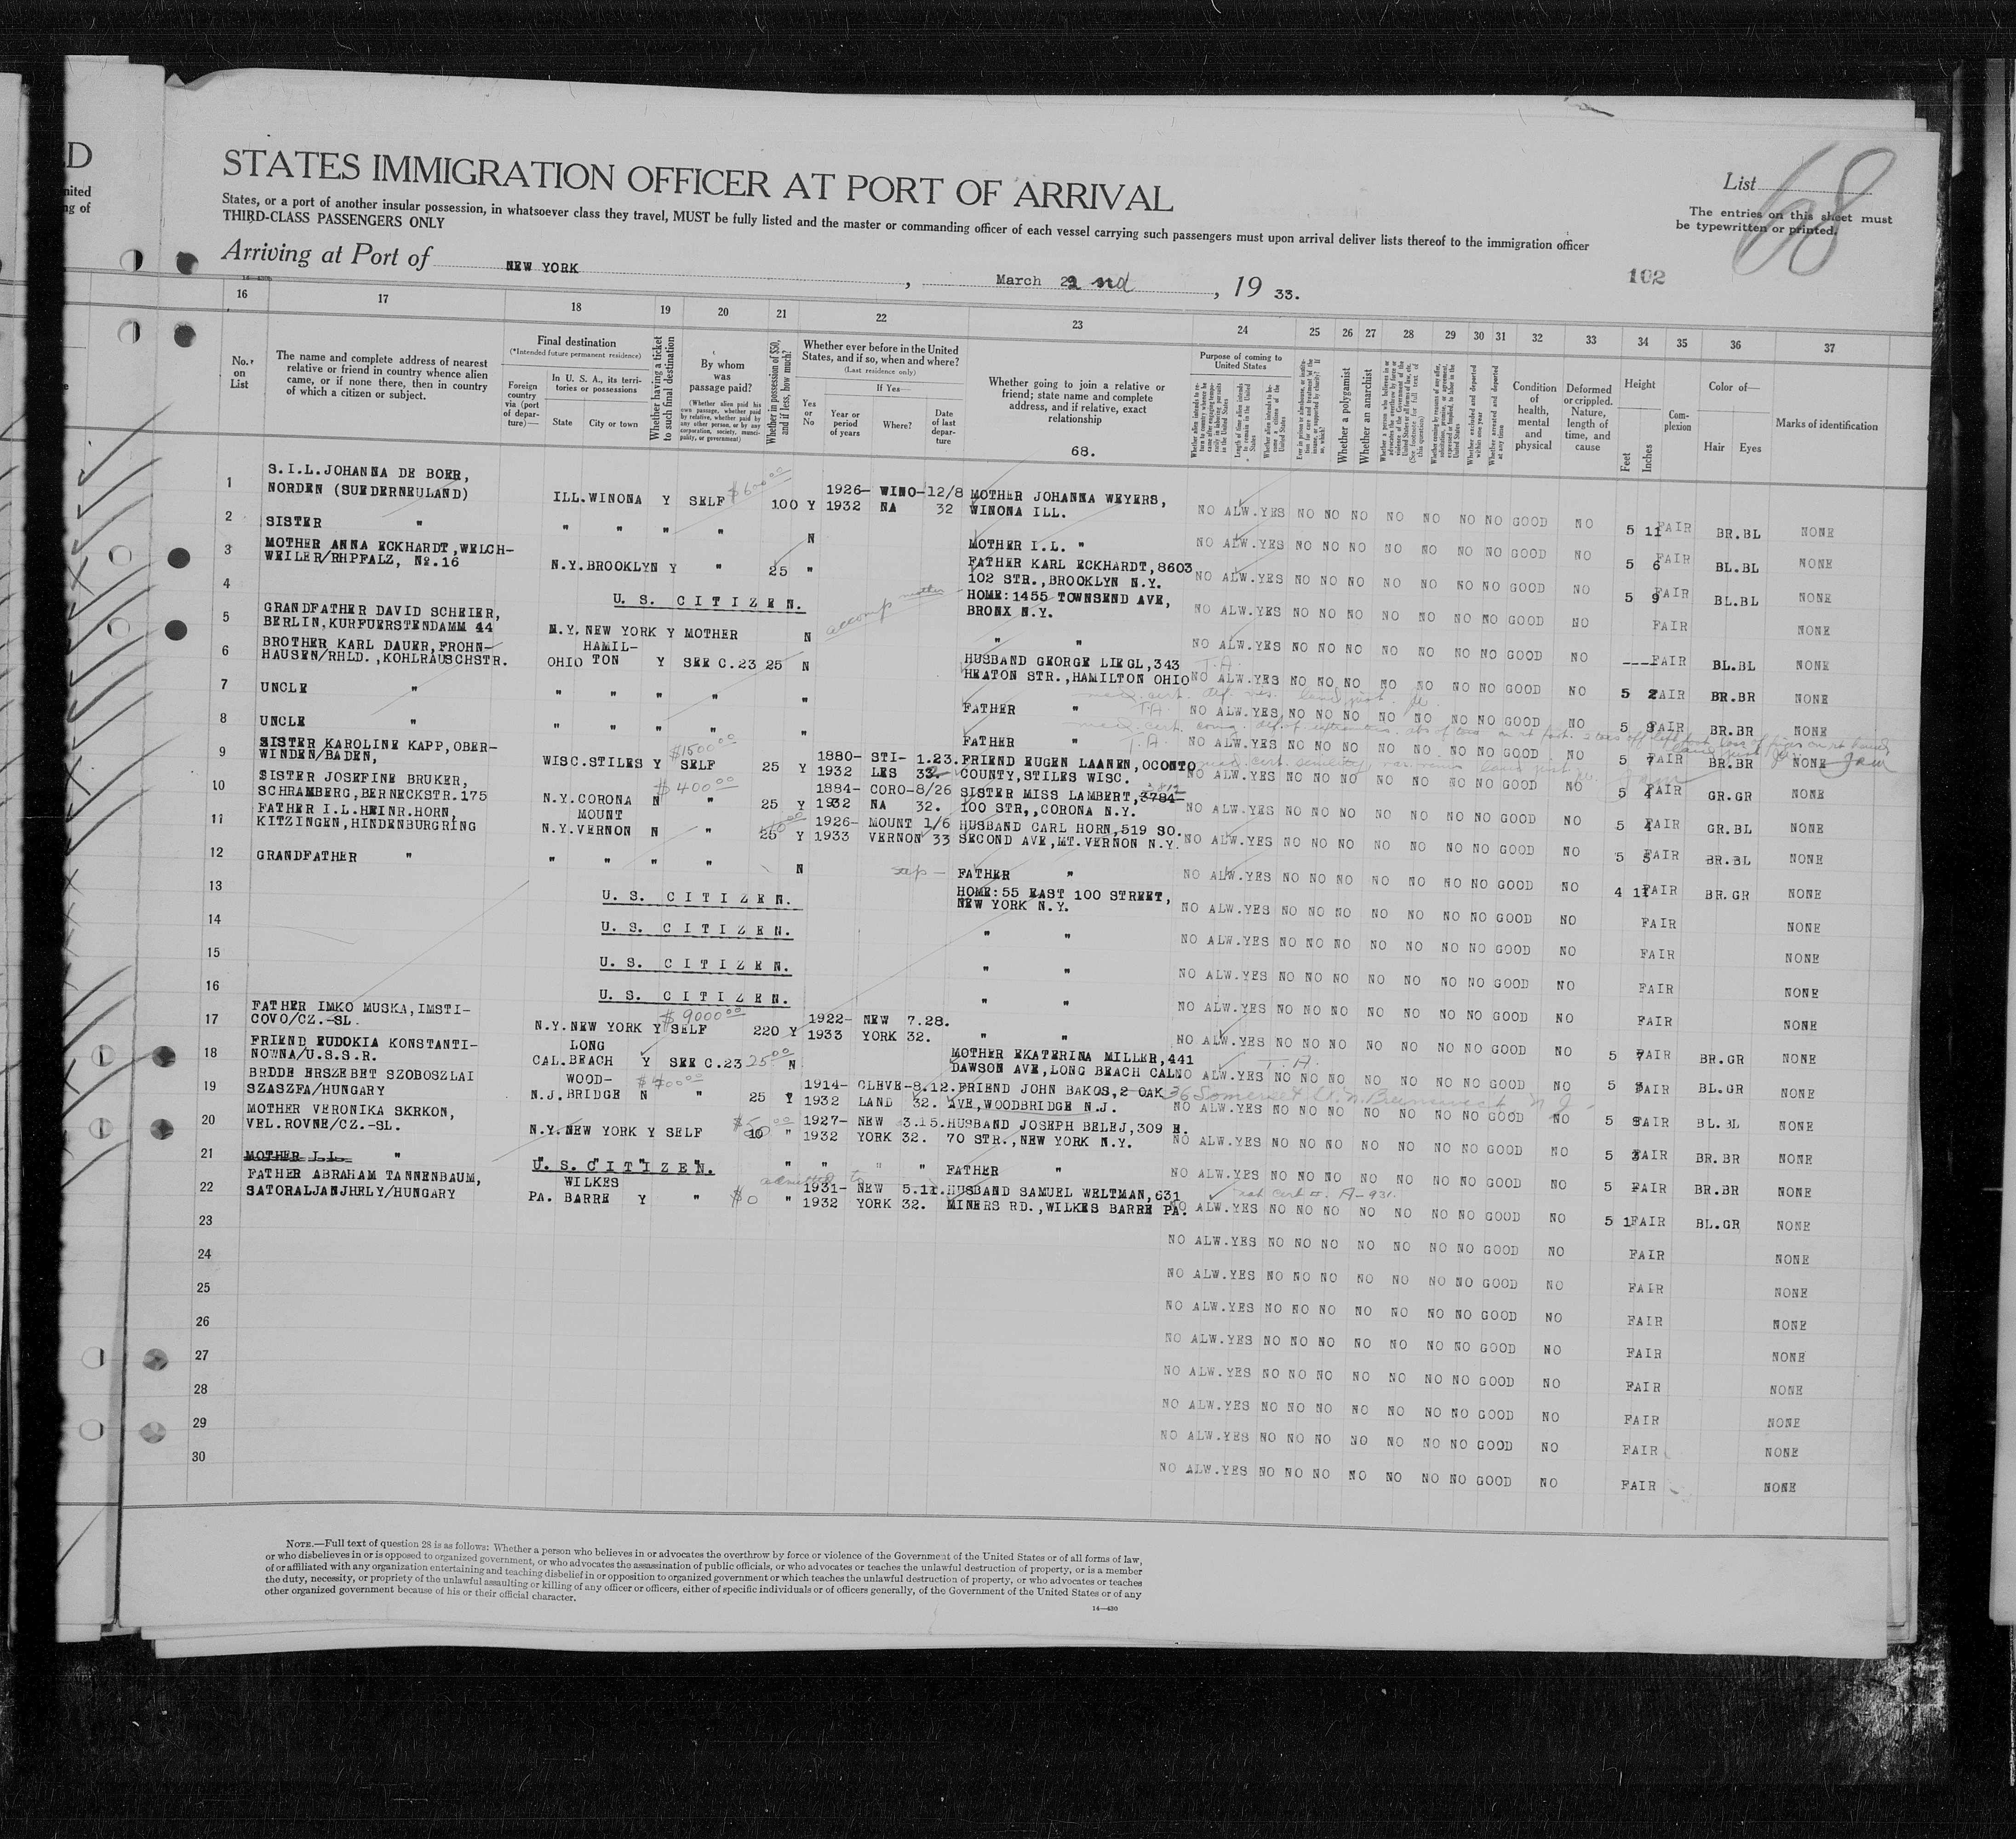 D
nited
ng of
STATES IMMIGRATION OFFICER AT PORT OF ARRIVAL
States, or a port of another insular possession, in whatsoever class they travel, MUST be fully listed and the master or commanding officer of each vessel carrying such passengers must upon arrival deliver lists thereof to the immigration officer
THIRD-CLASS PASSENGERS ONLY
List 68
The entries on this sheet must
be typewritten or printed.
Arriving at Port of NEW YORK, March 22nd, 19 33.
102
16 17 18 19 20 21 22 23 24 25 26 27 28 29 30 31 32 33 34 35 36 37
No. on List
The name and complete address of nearest relative or friend in country whence alien came, or if none there, then in country of which a citizen or subject.
Final destination
(*Intended future permanent residence)
Foreign country via (port of departure)—
In U. S. A., its territories or possessions
State City or town
Whether having a ticket to such final destination
By whom was passage paid?
(Whether alien paid his own passage, whether paid by relative, whether paid by any other person, or by any corporation, society, municipality, or government)
Whether in possession of $50, and if less, how much?
Whether ever before in the United States, and if so, when and where?
(Last residence only)
Yes or No
If Yes—
Year or period of years
Where?
Date of last departure
Whether going to join a relative or friend; state name and complete address, and if relative, exact relationship
68.
Purpose of coming to United States
Whether a polygamist
Whether an anarchist
Condition of health, mental and physical
Deformed or crippled. Nature, length of time, and cause
Height
Feet Inches
Complexion
Color of—
Hair Eyes
Marks of identification
1 S.I.L.JOHANNA DE BOER, NORDEN (SUEDERNEULAND) ILL. WINONA Y SELF $600.00 100 Y 1926-1932 WINO-NA 12/8 32 MOTHER JOHANNA WEYERS, WINONA ILL. NO ALW.YES NO NO NO NO NO NO NO GOOD NO 5 11 FAIR BR.BL NONE
2 SISTER " " " " " N MOTHER I.L. " NO ALW.YES NO NO NO NO NO NO NO GOOD NO 5 6 FAIR BL.BL NONE
3 MOTHER ANNA ECKHARDT, WELCH-WEILER/RHPFALZ, No.16 N.Y. BROOKLYN Y " 25 " FATHER KARL ECKHARDT, 8603 102 STR., BROOKLYN N.Y. NO ALW.YES NO NO NO NO NO NO NO GOOD NO 5 9 FAIR BL.BL NONE
4 U. S. CITIZEN. accomp mother HOME: 1455 TOWNSEND AVE, BRONX N.Y. NO ALW.YES NO NO NO NO NO NO NO GOOD NO FAIR NONE
5 GRANDFATHER DAVID SCHEIER, BERLIN, KURFUERSTENDAMM 44 N.Y. NEW YORK Y MOTHER N " " NO ALW.YES NO NO NO NO NO NO NO GOOD NO ---- FAIR BL.BL NONE
6 BROTHER KARL DAUER, FROHN-HAUSEN/RHLD., KOHLRAUSCHSTR. OHIO HAMIL-TON Y SEE C.23 25 N HUSBAND GEORGE LIEGL, 343 HEATON STR., HAMILTON OHIO T.A. NO ALW.YES NO NO NO NO NO NO NO GOOD NO 5 2 FAIR BR.BR NONE
7 UNCLE " " " " " " FATHER " T.A. NO ALW.YES NO NO NO NO NO NO NO GOOD NO 5 9 FAIR BR.BR NONE
8 UNCLE " " " " " " FATHER " T.A. NO ALW.YES NO NO NO NO NO NO NO GOOD NO 5 7 FAIR BR.BR NONE
9 SISTER KAROLINE KAPP, OBER-WINDEN/BADEN, WISC. STILES Y SELF $1500.00 25 Y 1880-1932 STI-LES 1.23. 32 FRIEND EUGEN LAANEN, OCONTO COUNTY, STILES WISC. NO ALW.YES NO NO NO NO NO NO NO GOOD NO 5 4 FAIR GR.GR NONE
10 SISTER JOSEFINE BRUKER, SCHRAMBERG, BERNECKSTR.175 N.Y. CORONA N " $400.00 25 Y 1884-1932 CORO-NA 8/26 32. SISTER MISS LAMBERT, 3784 100 STR., CORONA N.Y. NO ALW.YES NO NO NO NO NO NO NO GOOD NO 5 4 FAIR GR.BL NONE
11 FATHER I.L.HEINR.HORN, KITZINGEN, HINDENBURGRING N.Y. MOUNT VERNON N " 25 Y 1926-1933 MOUNT VERNON 1/6 33 HUSBAND CARL HORN, 519 SO. SECOND AVE, MT.VERNON N.Y. NO ALW.YES NO NO NO NO NO NO NO GOOD NO 5 5 FAIR BR.BL NONE
12 GRANDFATHER " " " " " N step — FATHER " NO ALW.YES NO NO NO NO NO NO NO GOOD NO 4 11 FAIR BR.GR NONE
13 U. S. CITIZEN. HOME: 55 EAST 100 STREET, NEW YORK N.Y. NO ALW.YES NO NO NO NO NO NO NO GOOD NO FAIR NONE
14 U. S. CITIZEN. " " NO ALW.YES NO NO NO NO NO NO NO GOOD NO FAIR NONE
15 U. S. CITIZEN. " " NO ALW.YES NO NO NO NO NO NO NO GOOD NO FAIR NONE
16 U. S. CITIZEN. " " NO ALW.YES NO NO NO NO NO NO NO GOOD NO FAIR NONE
17 FATHER IMKO MUSKA, IMSTI-COVO/CZ.-SL. N.Y. NEW YORK Y SELF $9000.00 220 Y 1922-1933 NEW YORK 7.28. 32. " " NO ALW.YES NO NO NO NO NO NO NO GOOD NO 5 7 FAIR BR.GR NONE
18 FRIEND EUDOKIA KONSTANTI-NOWNA/U.S.S.R. CAL. LONG BEACH Y SEE C.23 25.00 N MOTHER EKATERINA MILLER, 441 DAWSON AVE, LONG BEACH CAL T.A. NO ALW.YES NO NO NO NO NO NO NO GOOD NO 5 FAIR BL.GR NONE
19 BRDDE ERSZEBET SZOBOSZLAI SZASZFA/HUNGARY N.J. WOOD-BRIDGE N " 25 Y 1914-1932 CLEVE-LAND 8.12. 32. FRIEND JOHN BAKOS, 2 OAK AVE, WOODBRIDGE N.J. 36 Somerset St. N. Brunswick N.J. NO ALW.YES NO NO NO NO NO NO NO GOOD NO 5 FAIR BL.BL NONE
20 MOTHER VERONIKA SKRKON, VEL.ROVNE/CZ.-SL. N.Y. NEW YORK Y SELF 10 " 1927-1932 NEW YORK 3.15. 32. HUSBAND JOSEPH BELEJ, 309 E. 70 STR., NEW YORK N.Y. NO ALW.YES NO NO NO NO NO NO NO GOOD NO 5 3 FAIR BR.BR NONE
21 MOTHER I.L. " U. S. CITIZEN. " " " " FATHER " NO ALW.YES NO NO NO NO NO NO NO GOOD NO 5 FAIR BR.BR NONE
22 FATHER ABRAHAM TANNENBAUM, SATORALJANJHELY/HUNGARY PA. WILKES BARRE Y " $0 " 1931-1932 NEW YORK 5.11. 32. HUSBAND SAMUEL WELTMAN, 631 MINERS RD., WILKES BARRE PA. NO ALW.YES NO NO NO NO NO NO NO GOOD NO 5 1 FAIR BL.GR NONE
23 NO ALW.YES NO NO NO NO NO NO NO GOOD NO FAIR NONE
24 NO ALW.YES NO NO NO NO NO NO NO GOOD NO FAIR NONE
25 NO ALW.YES NO NO NO NO NO NO NO GOOD NO FAIR NONE
26 NO ALW.YES NO NO NO NO NO NO NO GOOD NO FAIR NONE
27 NO ALW.YES NO NO NO NO NO NO NO GOOD NO FAIR NONE
28 NO ALW.YES NO NO NO NO NO NO NO GOOD NO FAIR NONE
29 NO ALW.YES NO NO NO NO NO NO NO GOOD NO FAIR NONE
30 NO ALW.YES NO NO NO NO NO NO NO GOOD NO FAIR NONE
NOTE.—Full text of question 28 is as follows: Whether a person who believes in or advocates the overthrow by force or violence of the Government of the United States or of all forms of law,
or who disbelieves in or is opposed to organized government, or who advocates the assassination of public officials, or who advocates or teaches the unlawful destruction of property, or is a member
of or affiliated with any organization entertaining and teaching disbelief in or opposition to organized government or which teaches the unlawful destruction of property, or who advocates or teaches
the duty, necessity, or propriety of the unlawful assaulting or killing of any officer or officers, either of specific individuals or of officers generally, of the Government of the United States or of any
other organized government because of his or their official character.
14—430